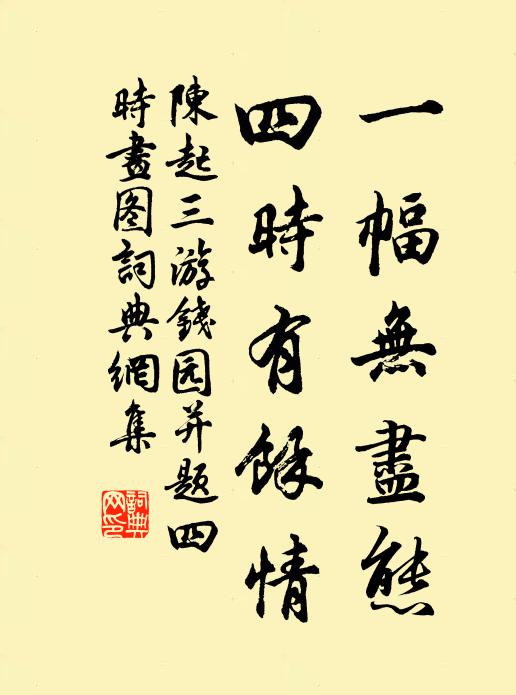 一幅無盡態
四時有餘情
陳起三游錢园并題四
時畫图詞典網集
詞典网印